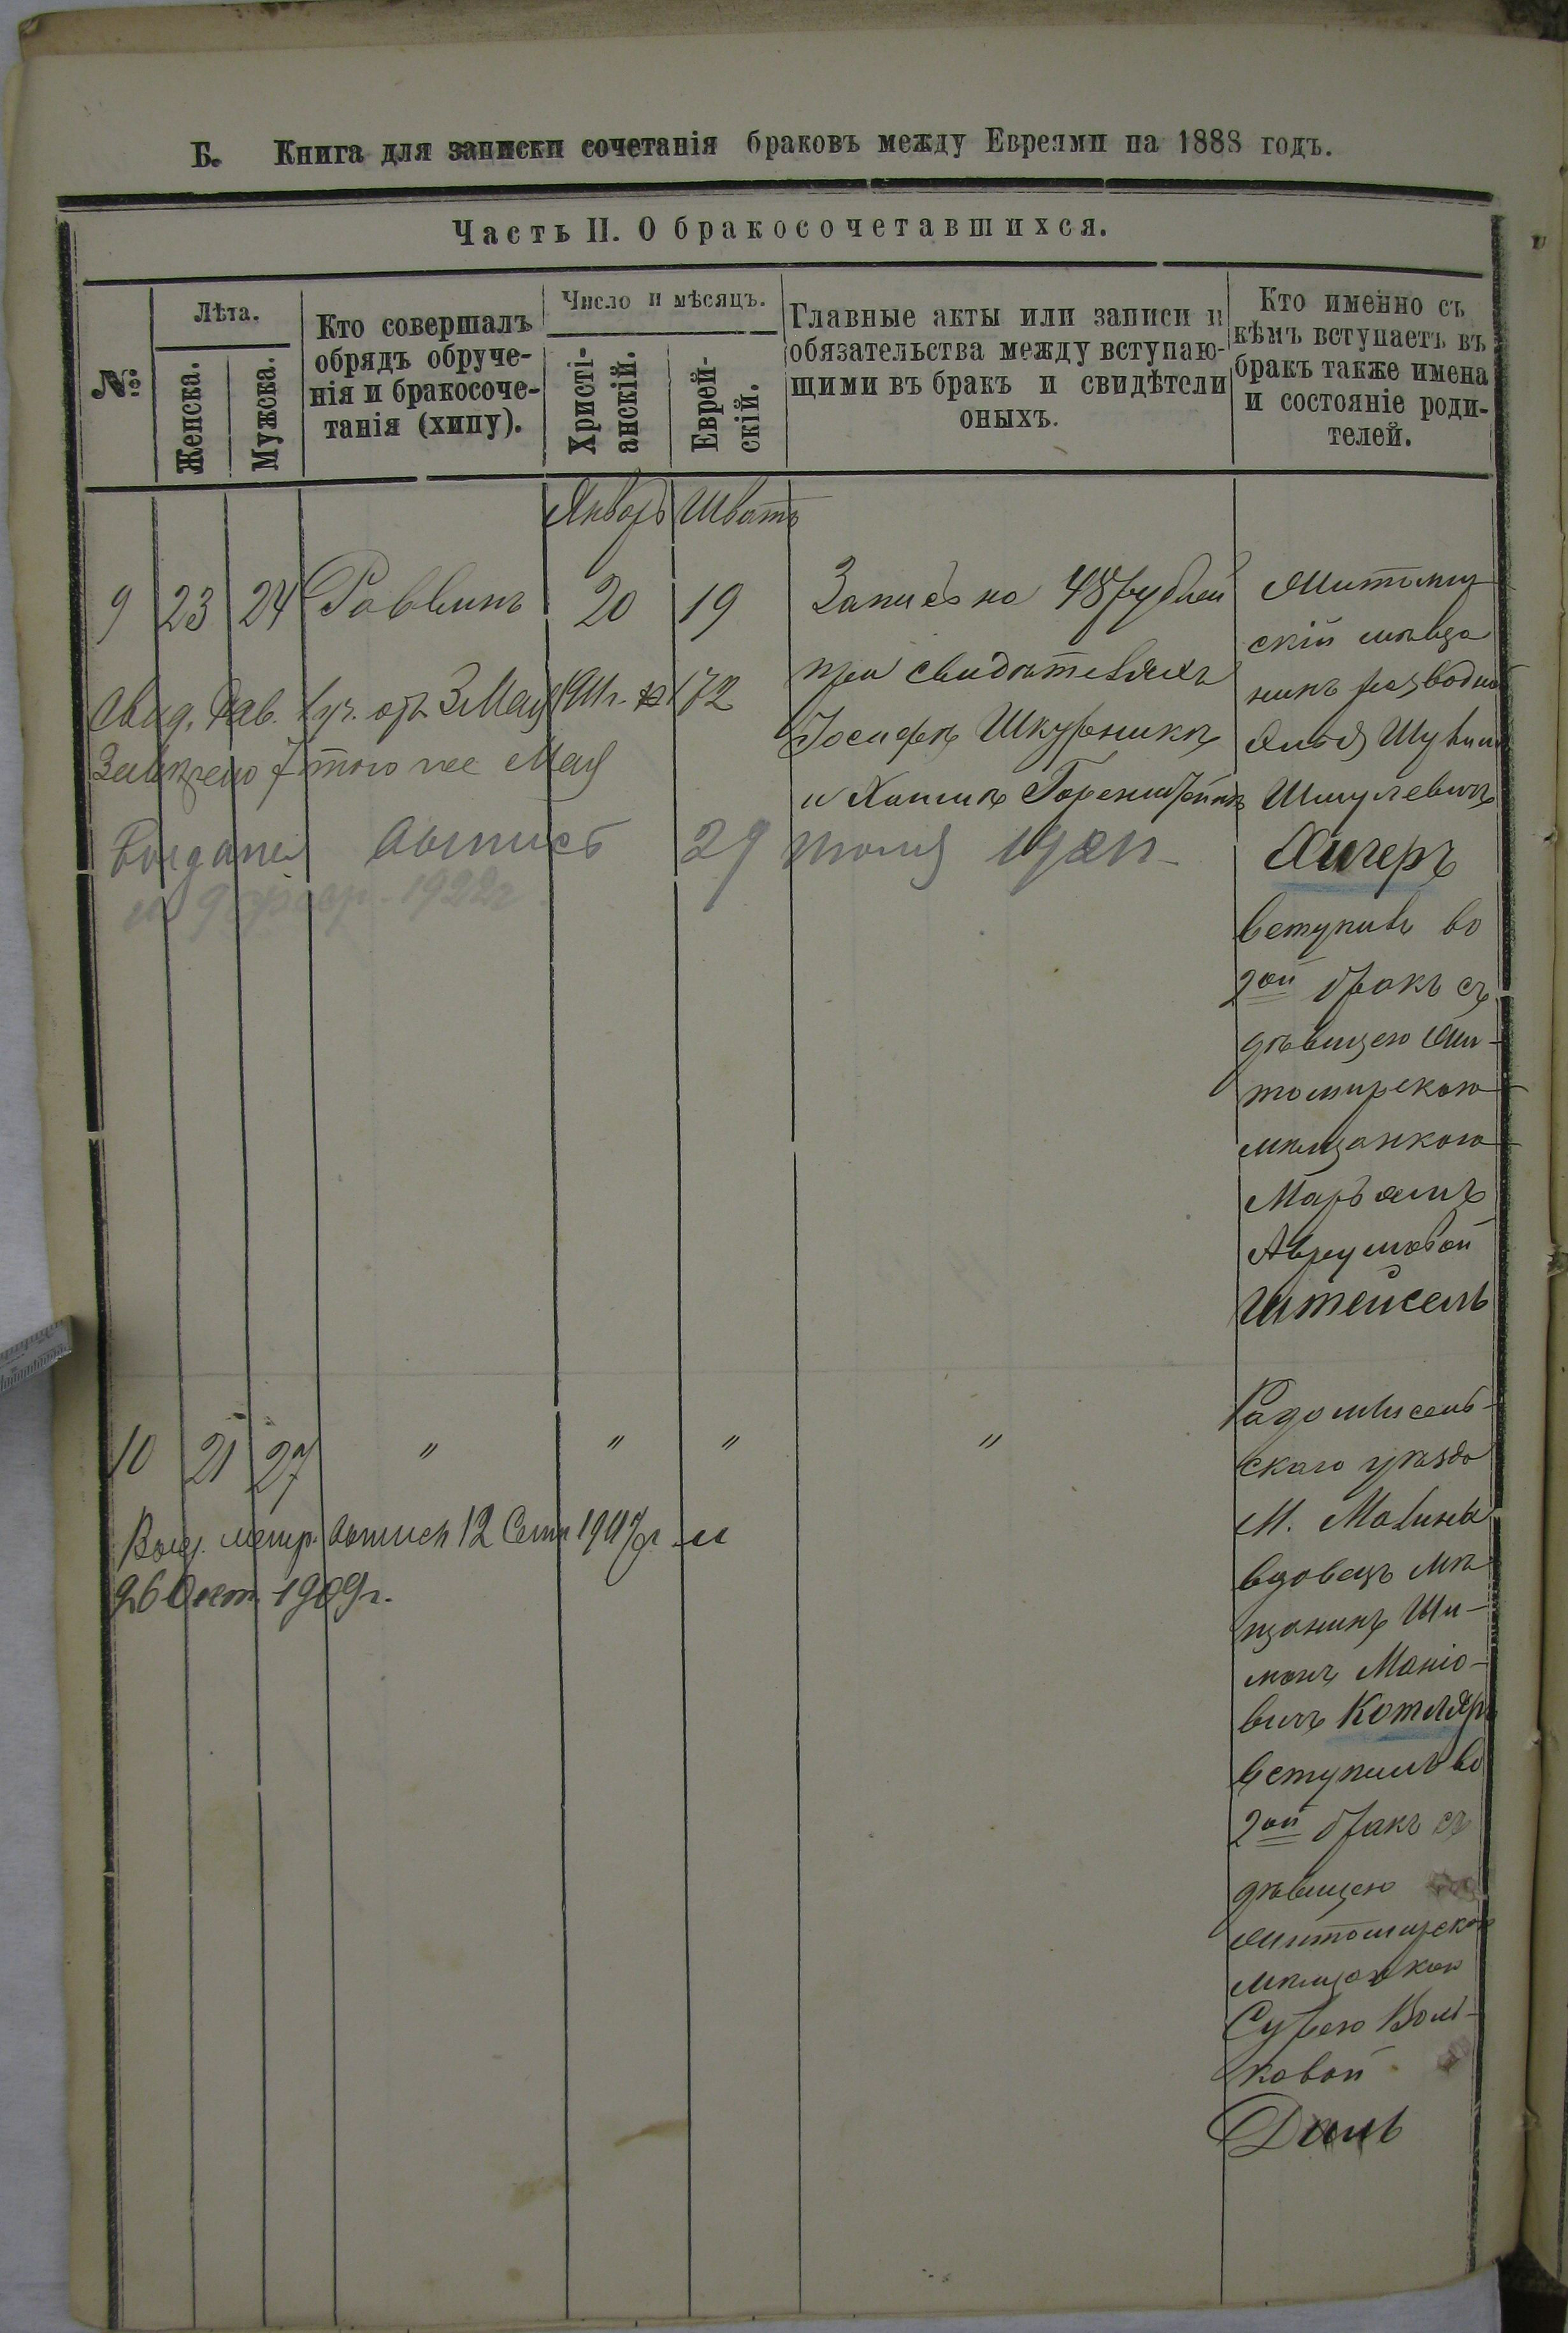 Б. Книга для записки сочетанія браковъ между Евреями на 1888 годъ.
Часть II. О бракосочетавшихся.
№
Лѣта.
Женска.
Мужска.
Кто совершалъ
обрядъ обруче-
нія и бракосоче-
танія (хипу).
Число и мѣсяцъ.
Христі-
анскій.
Еврей-
скій.
Главные акты или записи и
обязательства между вступаю-
щими въ бракъ и свидѣтели
оныхъ.
Кто именно съ
кѣмъ вступаетъ въ
бракъ также имена
и состояніе роди-
телей.
Январь Шватъ
9 23 24 Раввинъ 20 19
Запись на 48 рублей
при свидѣтеляхъ
Іосифѣ Шкурникѣ
и Хаимѣ
Житомир
скій мѣща
нинъ разводной
Шмулевичъ
Хигеръ
вступилъ во
2ой бракъ съ
дѣвицею Жи-
томирскою
мѣщанкою
Марьямъ
Аврумовой
Штейсель
Свид. Рав. 3 Мая 1911г. № 172
7 того же Мая
Выдана выпись 29 июля
и 9 февр. 1922г.
10 21 27 " " " "
Радомысль-
скаго уѣзда
М. Малина
вдовецъ мѣ
щанинъ Ши-
монъ Маніо-
вичъ Котляръ
вступилъ во
2ой бракъ съ
дѣвицею
Житомирскою
мѣщанкою
Сурею Воль-
ковой
Даль
Выд. метр. выписи 12 Сент 1907г. и
26 Окт. 1909г.